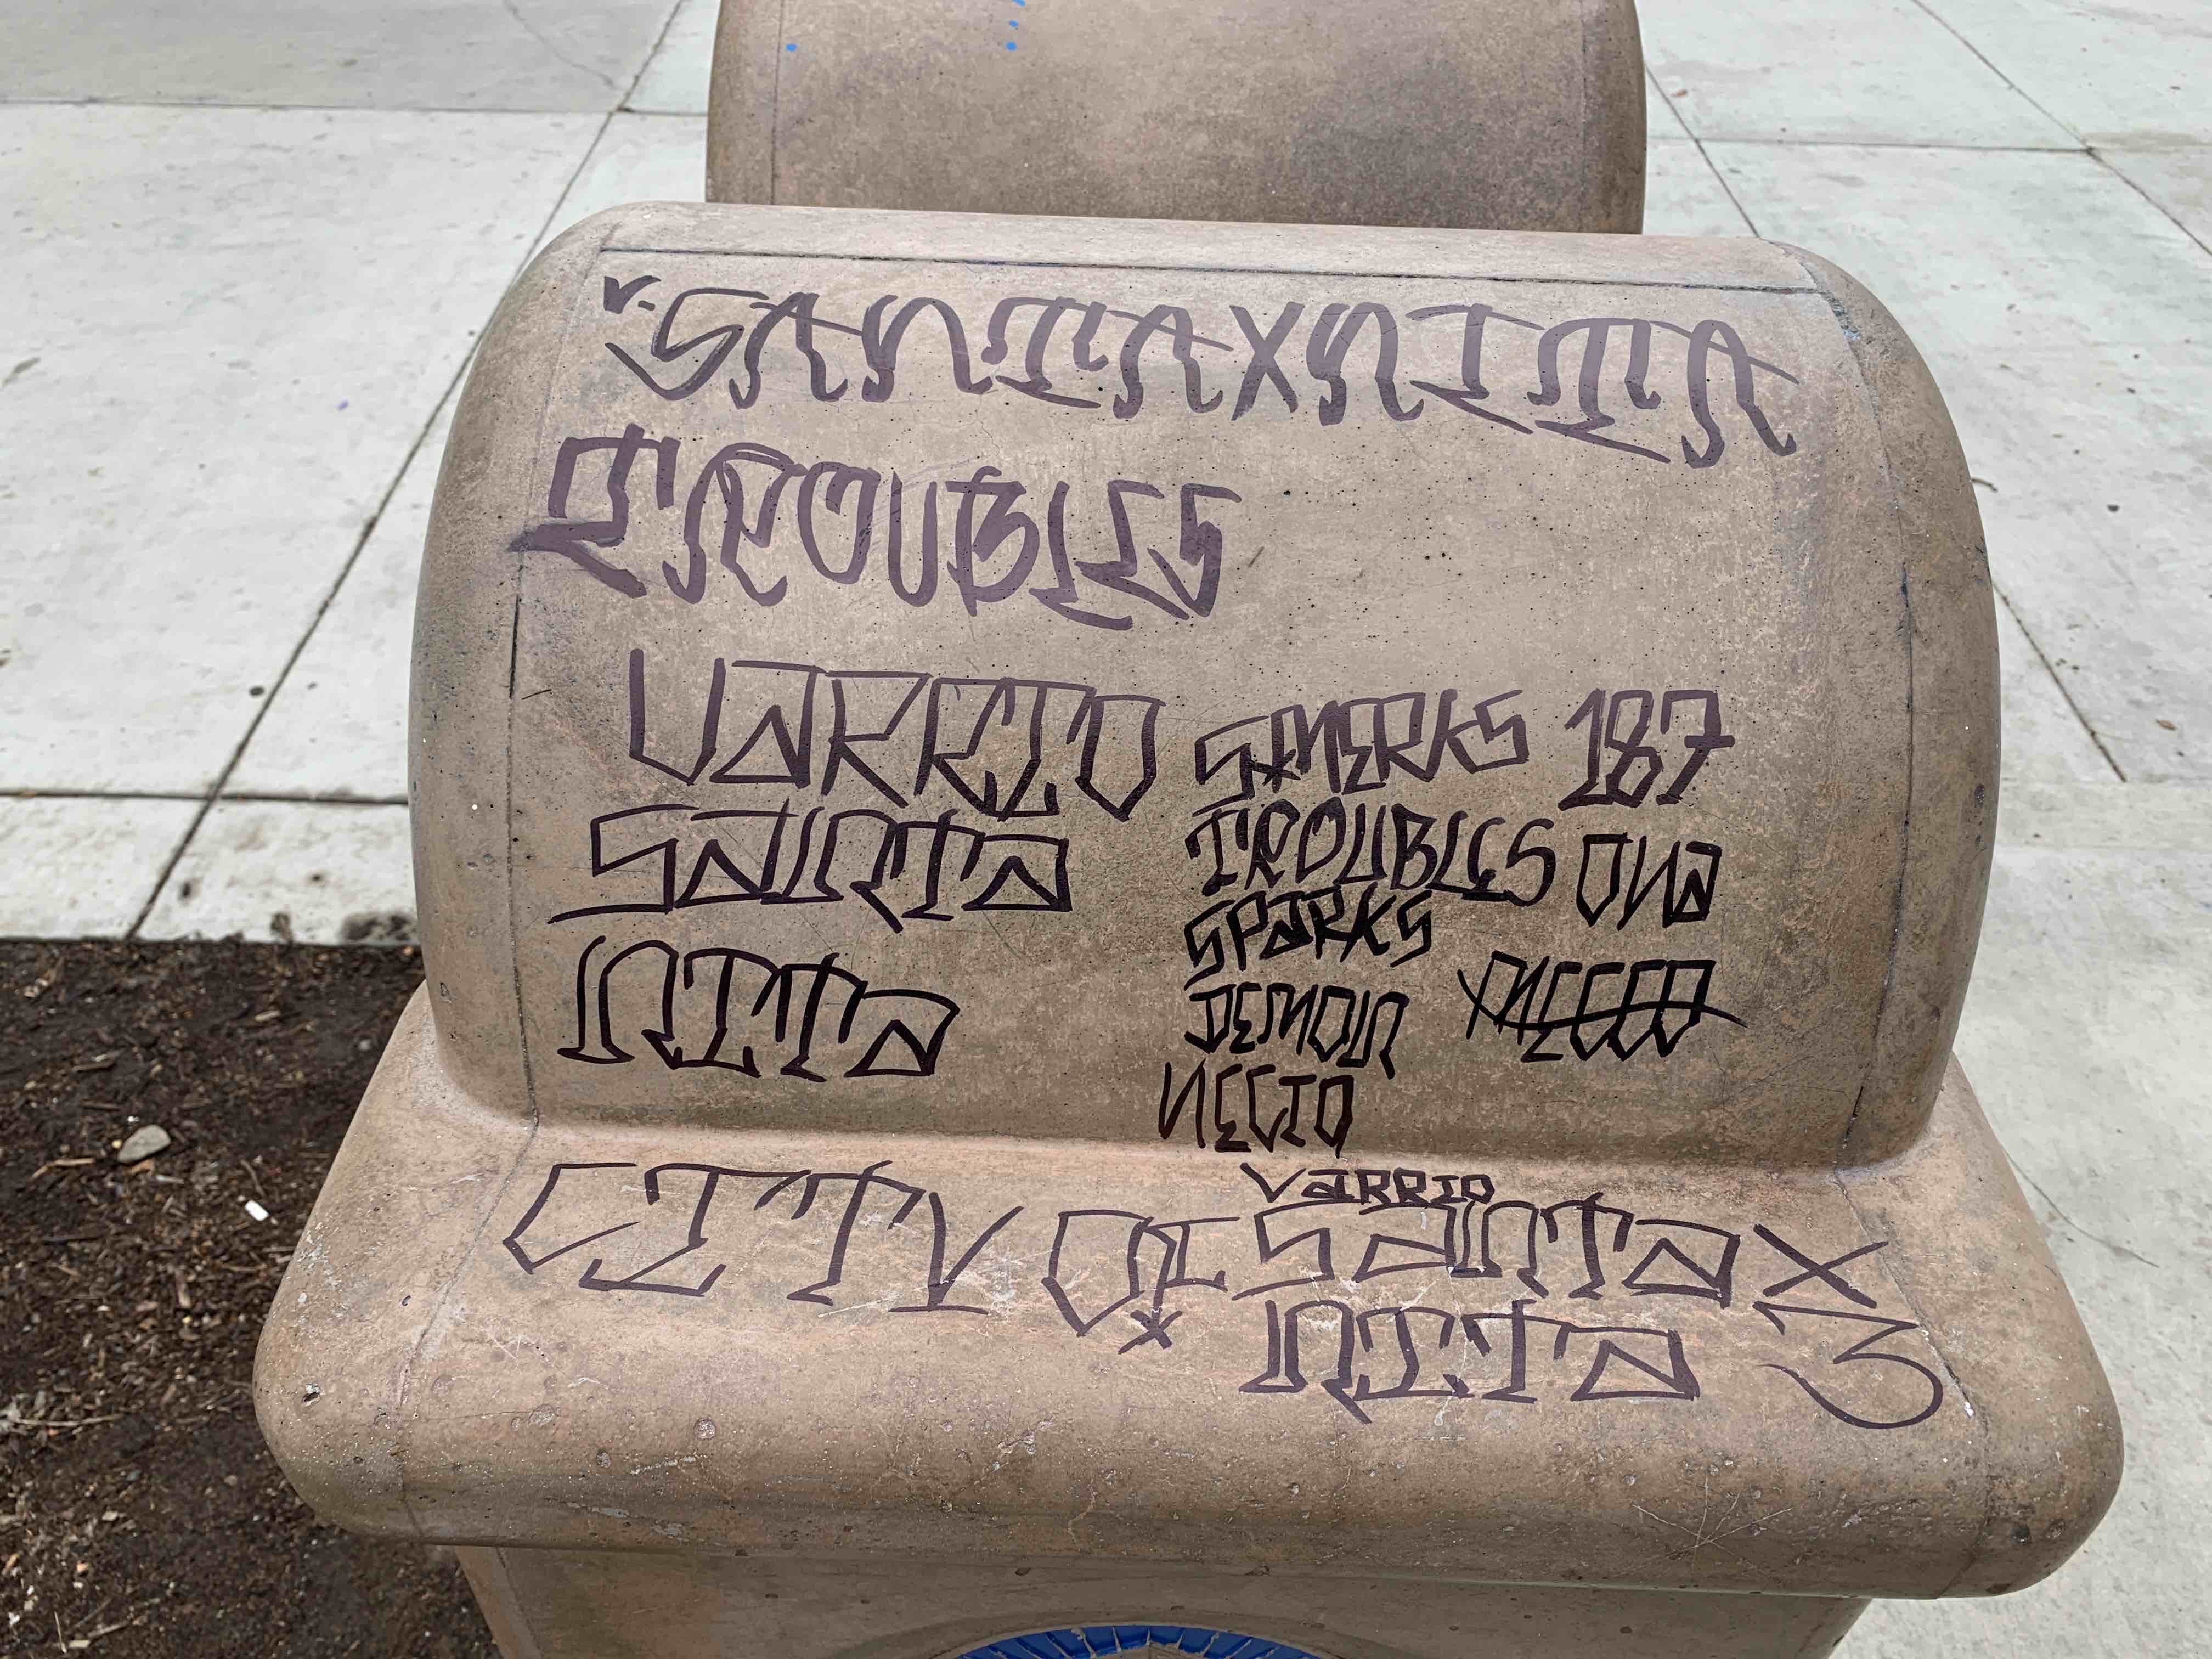 V-SANTAXNITA
TROUBLES
VARRIO
SANTA
NITA
SMERKS 187
TROUBLES ONA
SPARKS
DEMON
NECIO
VARRIO
CITY
SANTA X
NITA 3